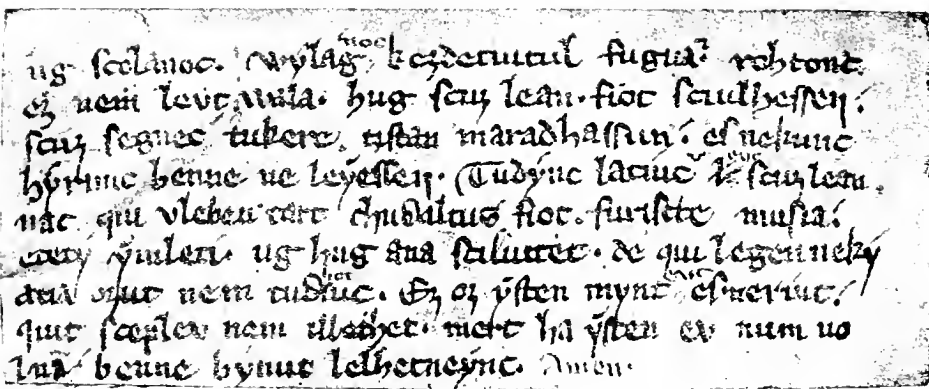 ug scolanoc. wylagnoc kezdetuitul fugua. rohtonc
ez nem levt wala. hug scuz lean. fiot sciulhessen.
scuz segnec tukere. tistan maradhassun. es nekunc
hyrunc benne ne leyessen. Tudyuc latiuc evt scuz lean
nac qui vleben tart chudaltus fiot. furiscte musia.
etety ymleti. ug hug ana sciluttet. de qui legen neky
atia ozut nem tudhotiuc. Ez oz ysten mynt evt esmeriuc.
quit sceplev nem illethet. mert ha ysten ev num uo
lna benne bynut lelhetneync. Amen.